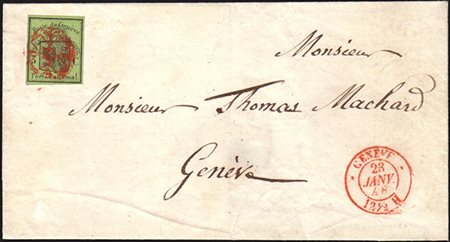 Poste de Genève
Port Cantonal
Monsieur
Monsieur Thomas Machard
Genève
GENÈVE
23
JANV
48
12½ H